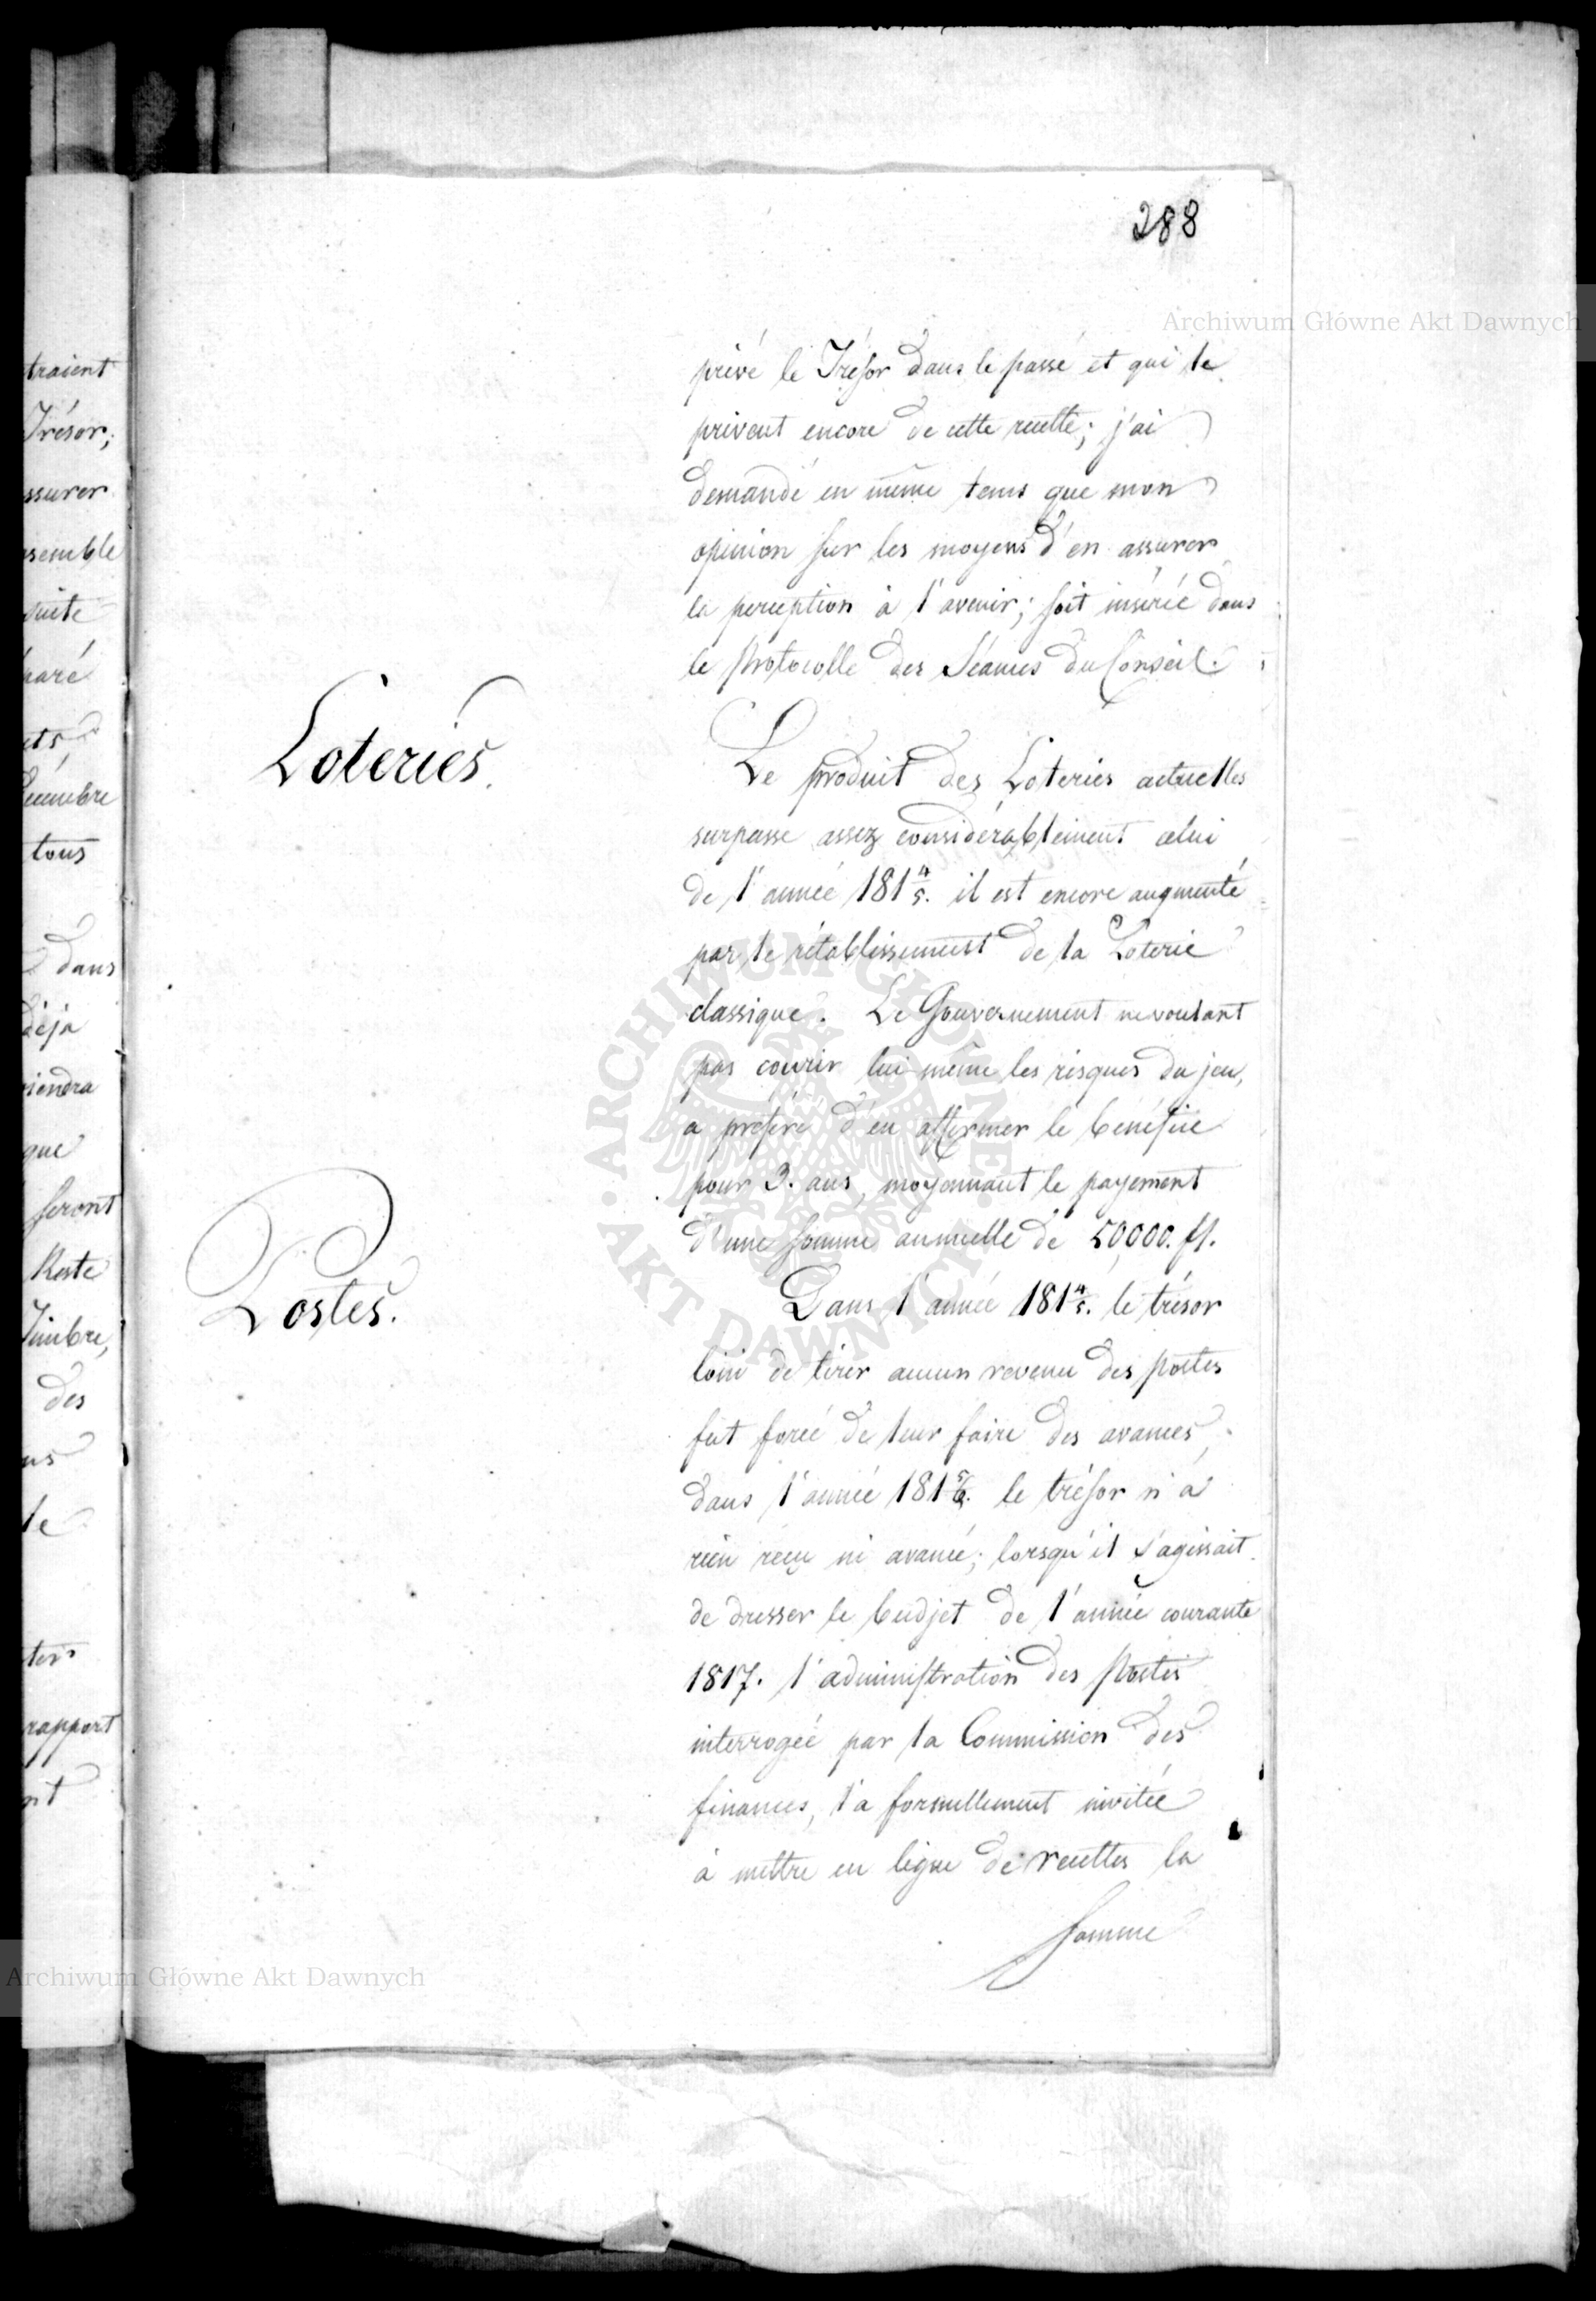 288
Archiwum Główne Akt Dawnych
traient
Trésor;
ssurer
semble
suite
paré
ets,
Décembre
tous
dans
déja
viendra
que
seront
Reste
Timbre,
des
ns
le
ters
rapport
nt
privé le Trésor dans le passé et qui le
privent encore de cette recette; j'ai
demandé en même tems que mon
opinion sur les moyens d'en assurer
la perception à l'avenir; soit insérée dans
le Protocolle des Séances du Conseil.
Loteries.
Le produit des Loteries actuelles
surpasse assez considérablement celui
de l'année 181 4/5. il est encore augmenté
par le rétablissement de la Loterie
classique. Le Gouvernement ne voulant
pas courir lui-même les risques du jeu,
a préféré d'en affermer le bénéfice
pour 3. ans, moyennant le payement
d'une somme annuelle de 50,000. fl.
Postes.
Dans l'année 181 4/5. le trésor
loin de tirer aucun revenu des Postes
fut forcé de leur faire des avances,
dans l'année 181 5/6. le trésor n'a
rien reçu ni avancé; lorsqu'il s'agissait
de dresser le budjet de l'année courante
1817. l'administration des Postes
interrogée par la Commission des
finances, l'a formellement invitée
à mettre en ligne de recettes la
somme
Archiwum Główne Akt Dawnych
ARCHIWUM GŁÓWNE AKT DAWNYCH